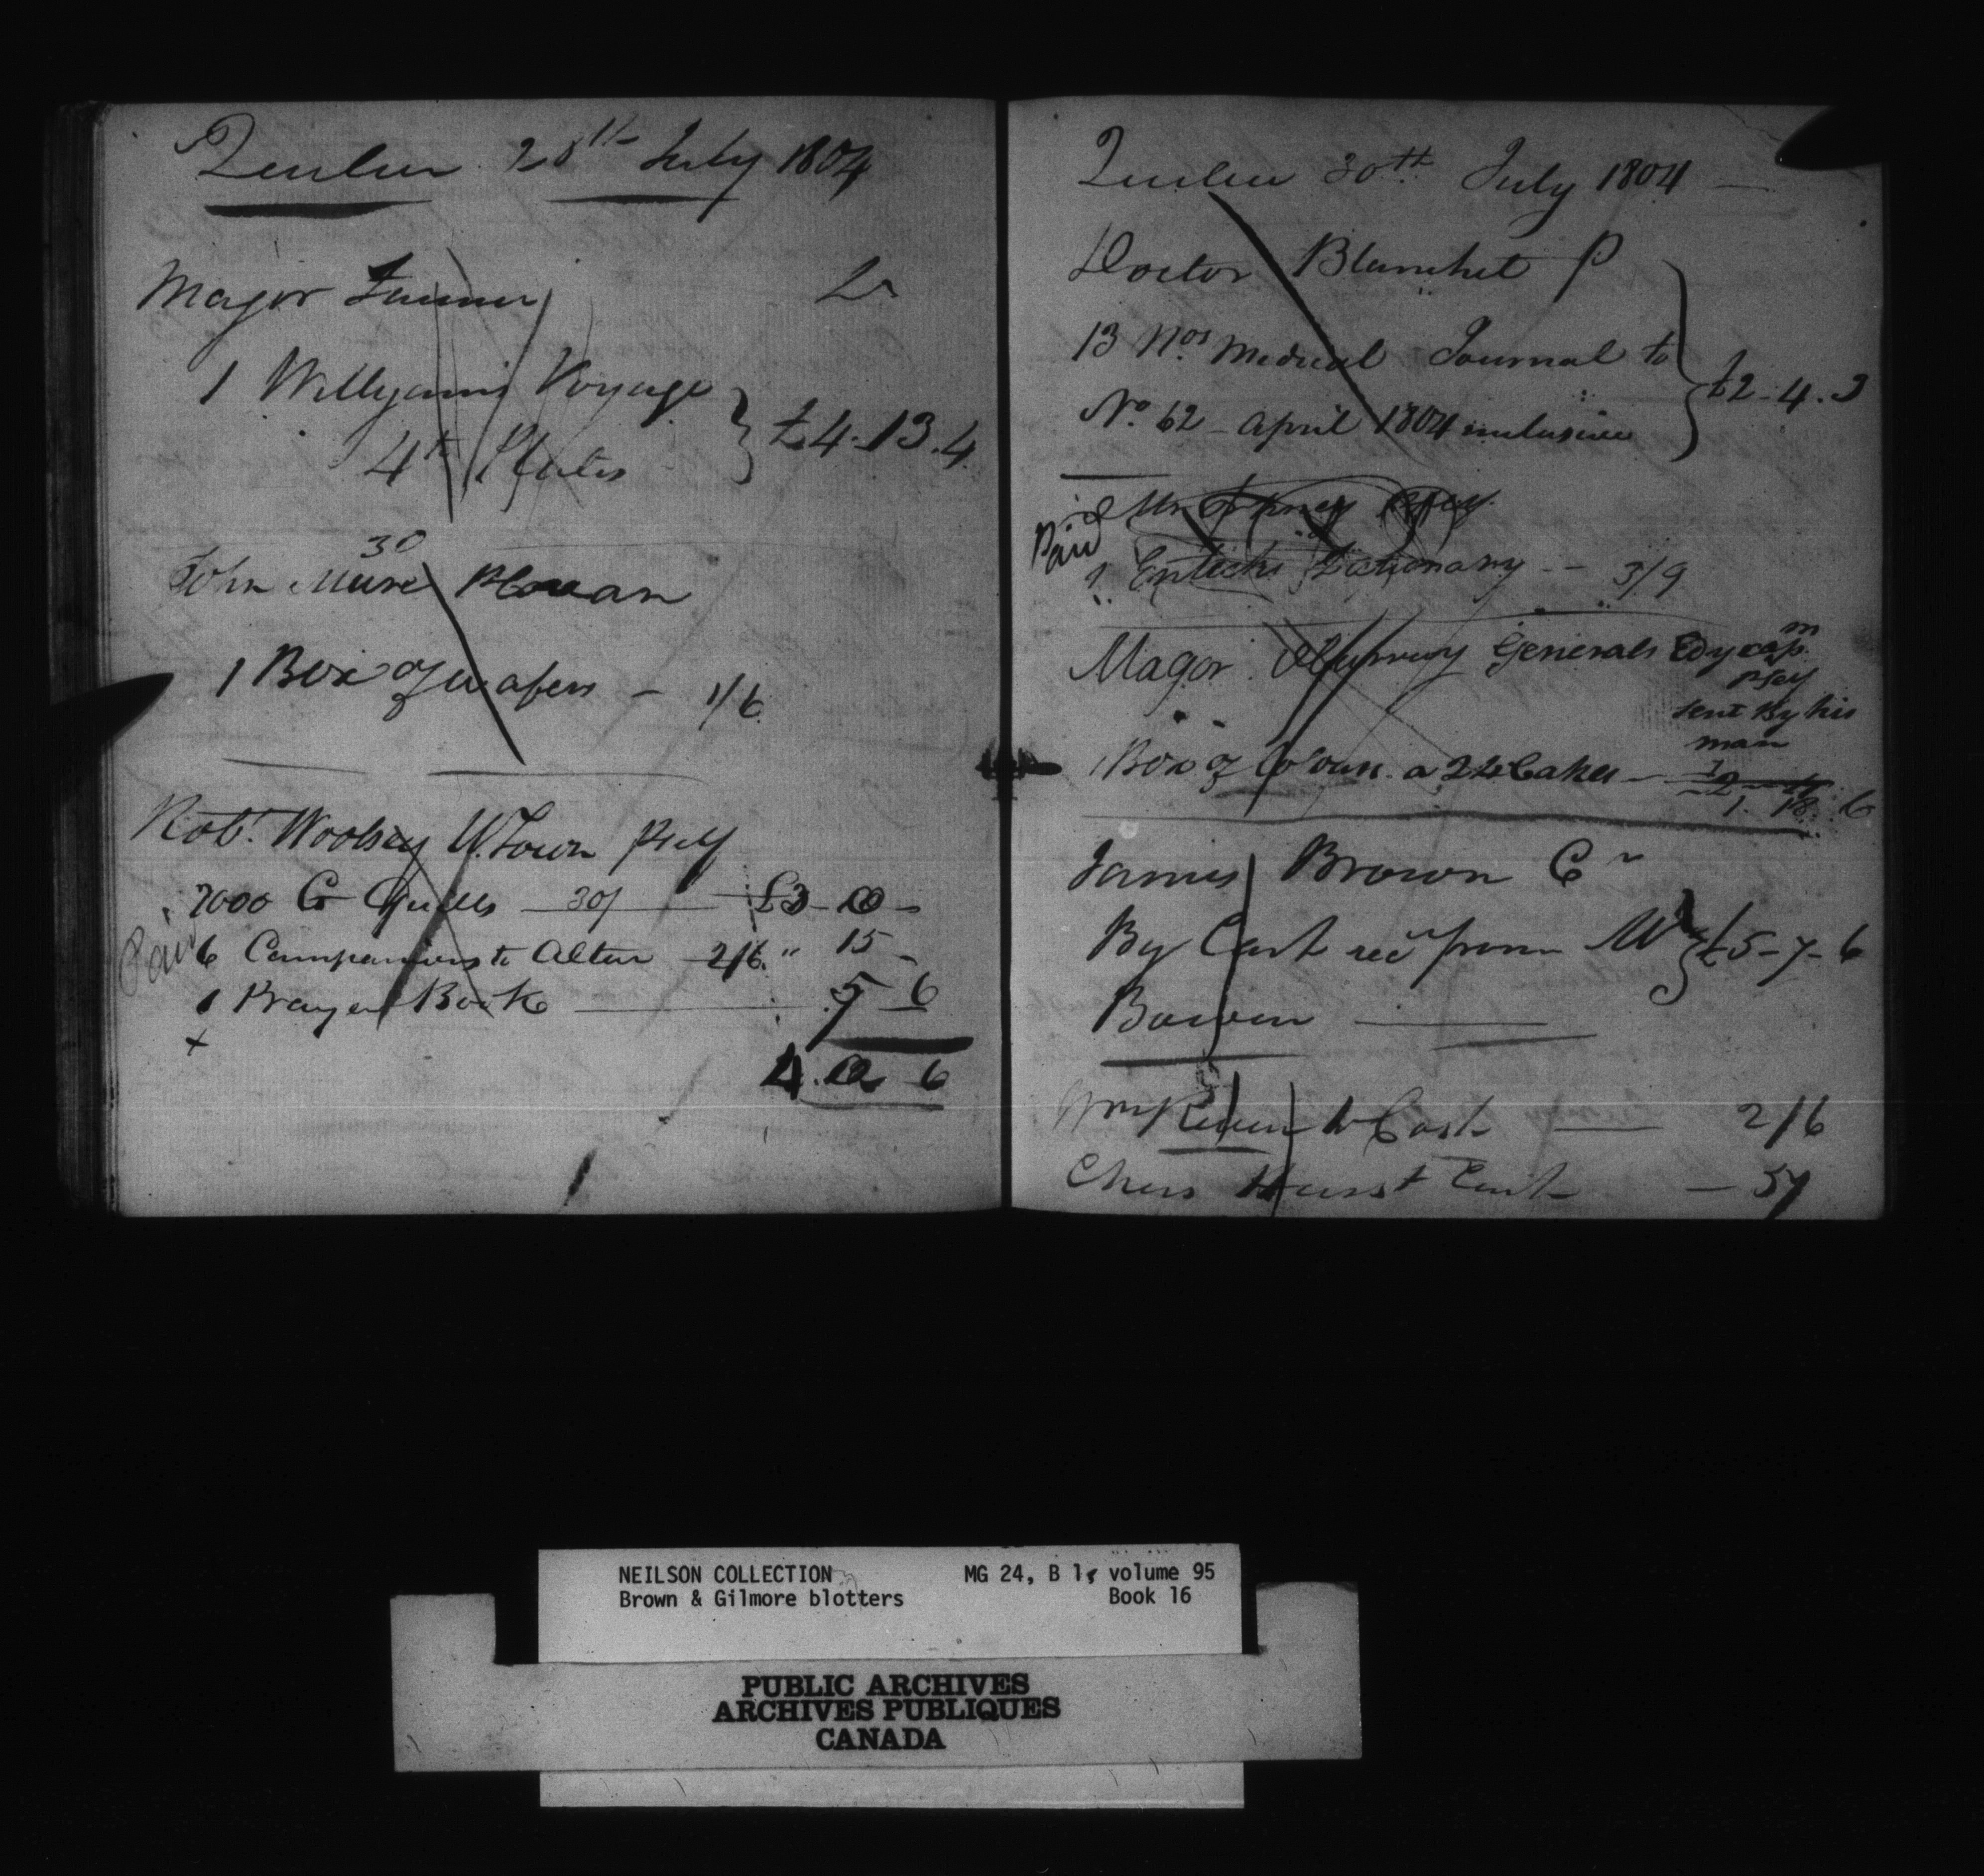 Quebec 28th July 1804
Major
1 Willyams Voyage
4to Plates
£4-13.4
30
John Mure
1 Box of wafers - 1/6
Robt. Woolsey U. Town pself
2000 G Quills 30/ £3-00-
Paid
6 Companions to Altar 2/6 " 15 -
1 Prayer Book 5 6
x
4. 0 6
Quebec 30th July 1804
Doctor Blanchet P
13 Nos Medical Journal to
No. 62 - April 1804 inclusive
£2-4.3
Mr
Paid
1 Enticks Dictionary -- 3/9
Major Murray Generals
pself
sent By his
man
1 Box of a 24 Cakes -
1. 18. 6
James Brown Cr
By Cash recd from Mr
£5-7-6
Bowen
Wm to Cash 2/6
Chers Hurst Cash - 5/
NEILSON COLLECTION MG 24, B 1, volume 95
Brown & Gilmore blotters Book 16
PUBLIC ARCHIVES
ARCHIVES PUBLIQUES
CANADA